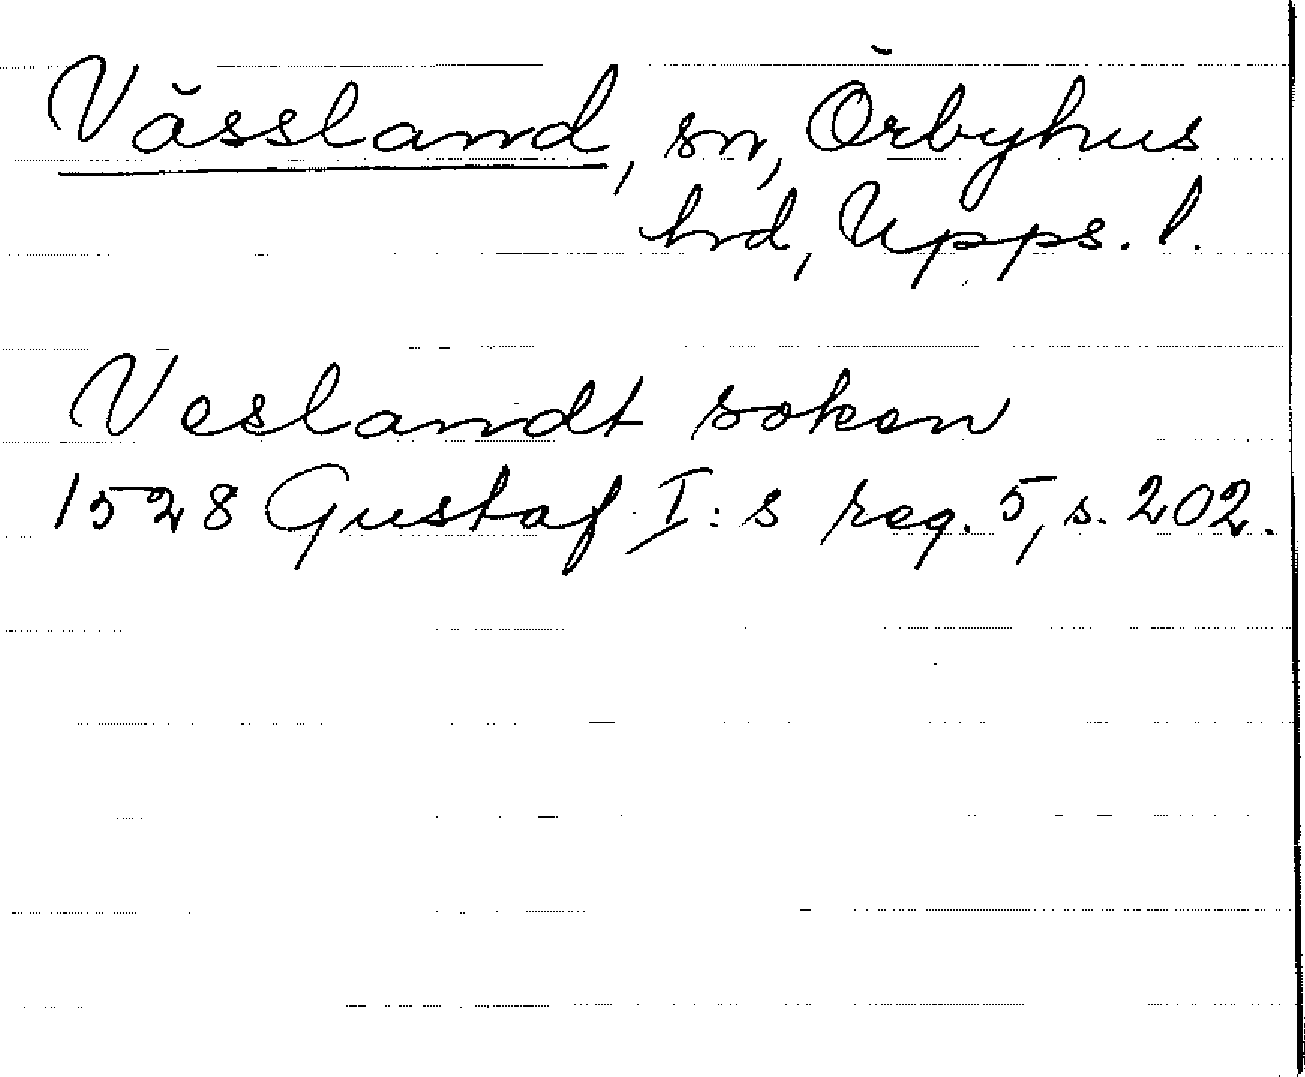 Vässland, sn, Örbyhus
hrd, Upps. l.
Veslandt soken
1528 Gustaf I:s reg. 5, s. 202.